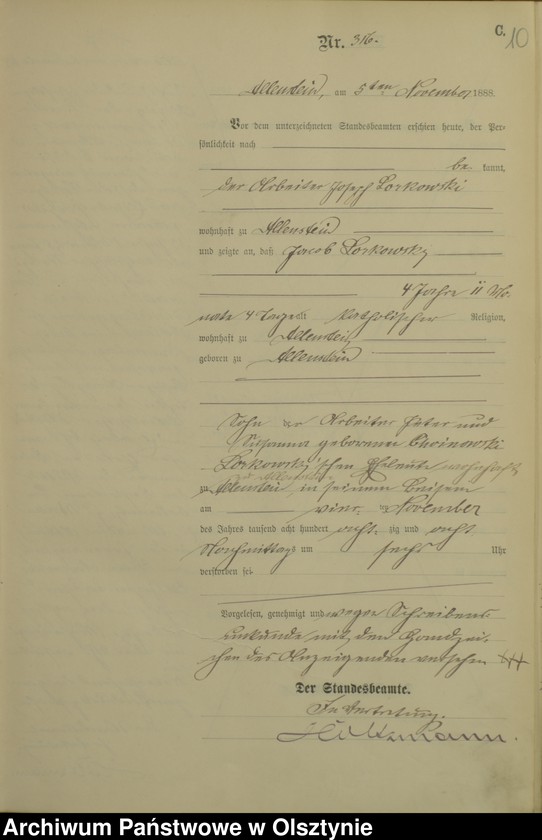 C.
10
Nr. 316.
Allenstein, am 5ten November 1888.
Vor dem unterzeichneten Standesbeamten erschien heute, der Per-
sönlichkeit nach
be kannt,
der Arbeiter Joseph Lorkowski
wohnhaft zu Allenstein
und zeigte an, daß Jacob Lorkowsky
4 Jahre 11 Mo-
nate 4 Tage alt katholischer Religion,
wohnhaft zu Allenstein
geboren zu Allenstein
Sohn der Arbeiter Peter und
Susanna geborenen Choinowski
Lorkowsky'schen Eheleute wohnhaft
zu Allenstein
zu Allenstein, in seinem Beisein
am vier November
des Jahres tausend acht hundert acht zig und acht
Nachmittags um sechs Uhr
verstorben sei.
Vorgelesen, genehmigt und wegen Schreibens
unkunde mit den Handzei-
chen des Anzeigenden versehen +++
Der Standesbeamte.
In Vertretung.
Archiwum Państwowe w Olsztynie